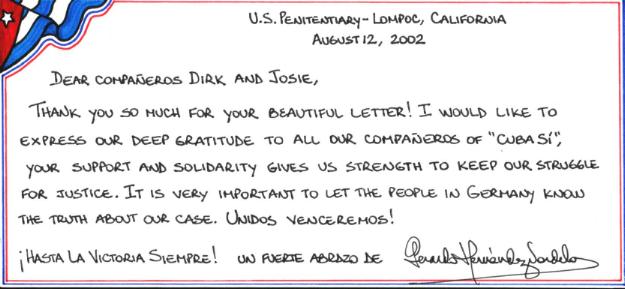 U.S. PENITENTIARY - LOMPOC, CALIFORNIA
AUGUST 12, 2002
DEAR COMPAÑEROS DIRK AND JOSIE,
THANK YOU SO MUCH FOR YOUR BEAUTIFUL LETTER! I WOULD LIKE TO
EXPRESS OUR DEEP GRATITUDE TO ALL OUR COMPAÑEROS OF "CUBA SÍ",
YOUR SUPPORT AND SOLIDARITY GIVES US STRENGTH TO KEEP OUR STRUGGLE
FOR JUSTICE. IT IS VERY IMPORTANT TO LET THE PEOPLE IN GERMANY KNOW
THE TRUTH ABOUT OUR CASE. UNIDOS VENCEREMOS!
¡HASTA LA VICTORIA SIEMPRE! UN FUERTE ABRAZO DE Gerardo Hernández Nordelo